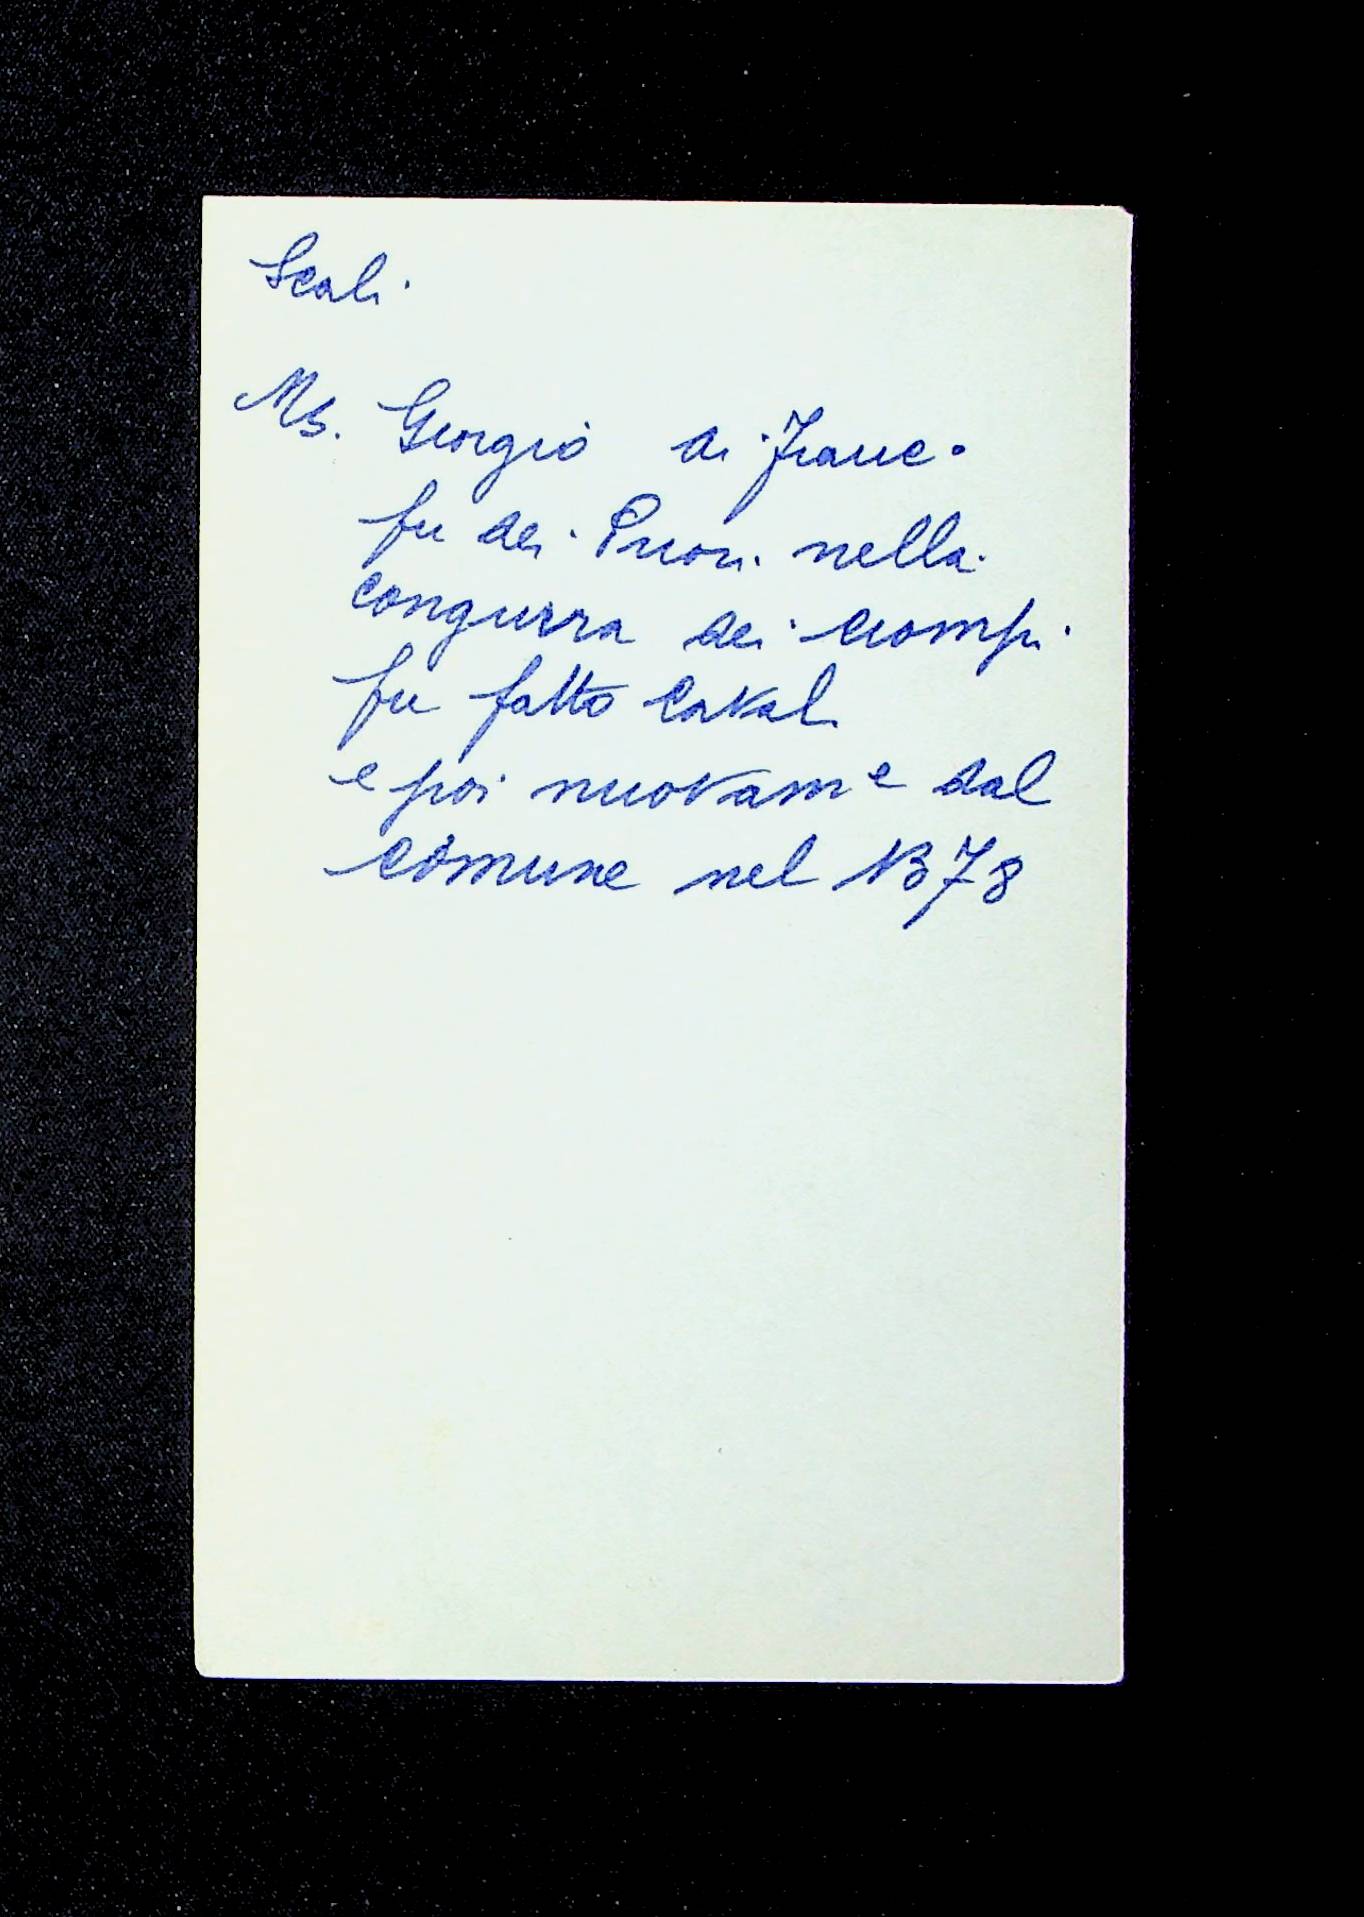 Scali
Ms. Giorgio di Franc.o
fu dei Priori nella
congiurra dei ciompi
fu fatto Caval.
e poi nuovam e dal
comune nel 1378